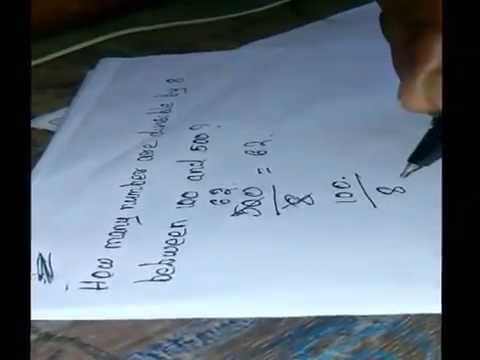 2
How many number are divisible by 8
between 100 and 500?
62
500/8 = 62.
100/8